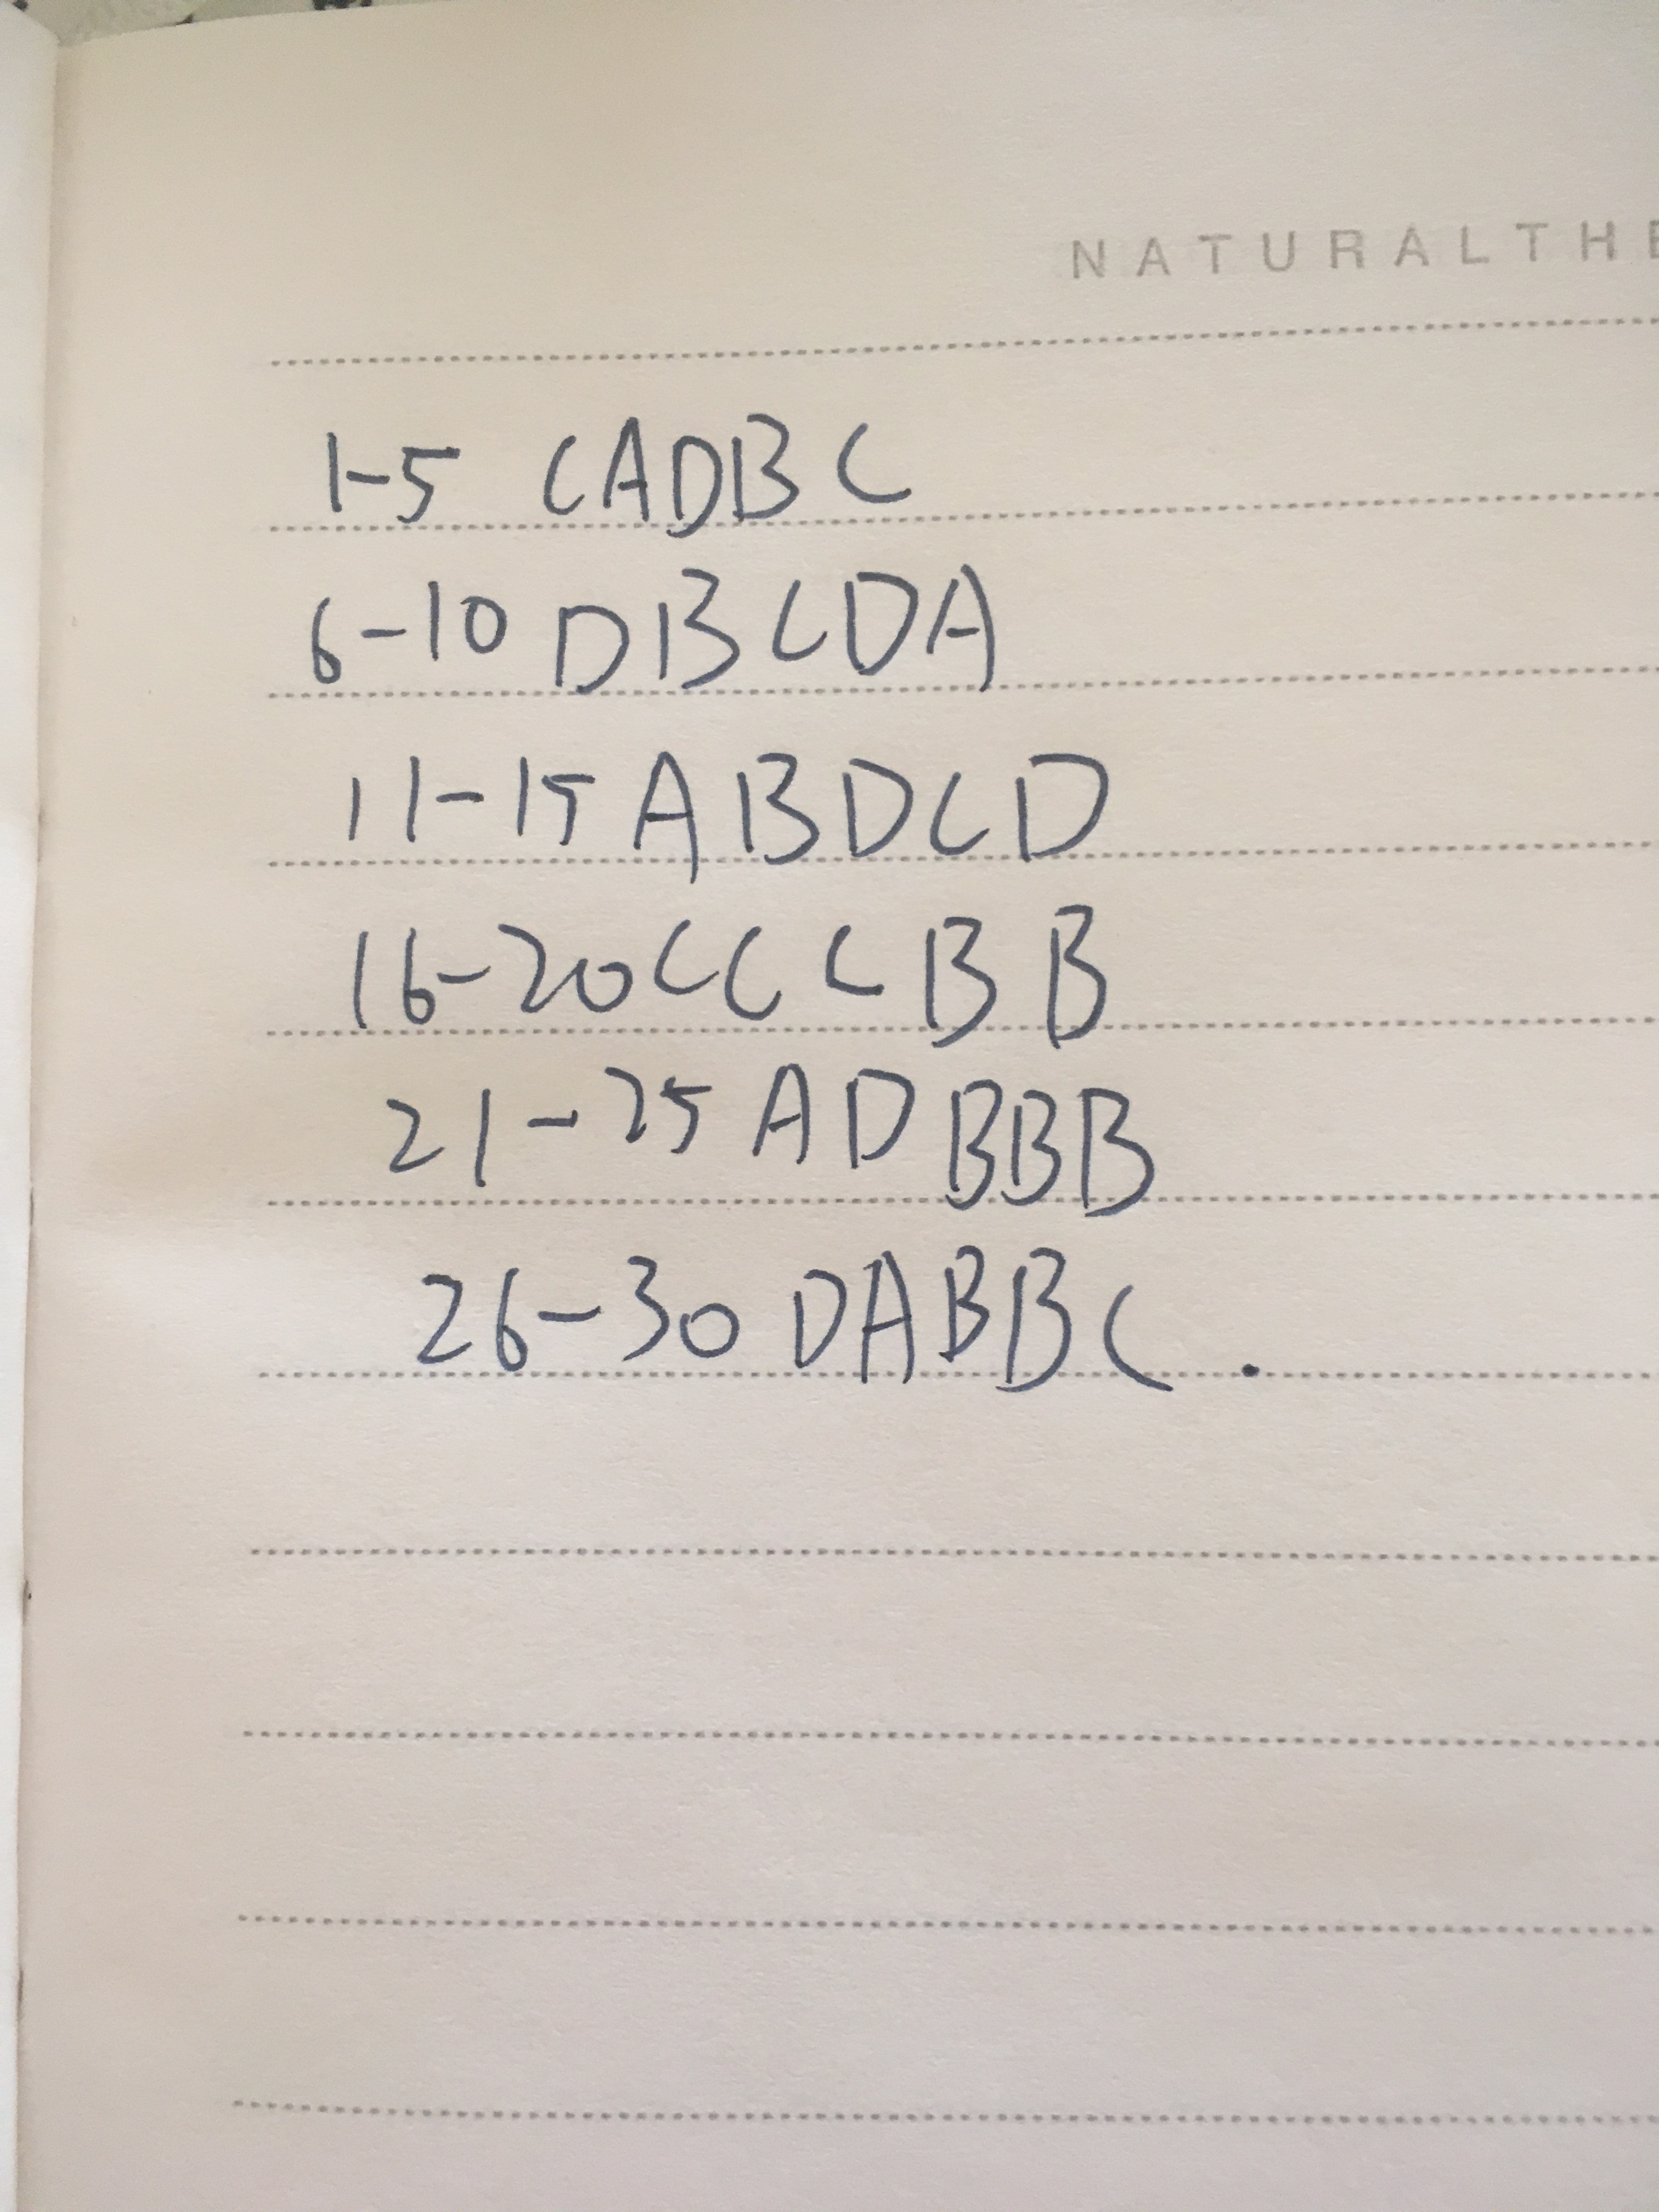 NATURALTHE
1-5 CADBC
6-10 DBCDA
11-15 ABDCD
16-20 CCCBB
21-25 ADBBB
26-30 DABBC.